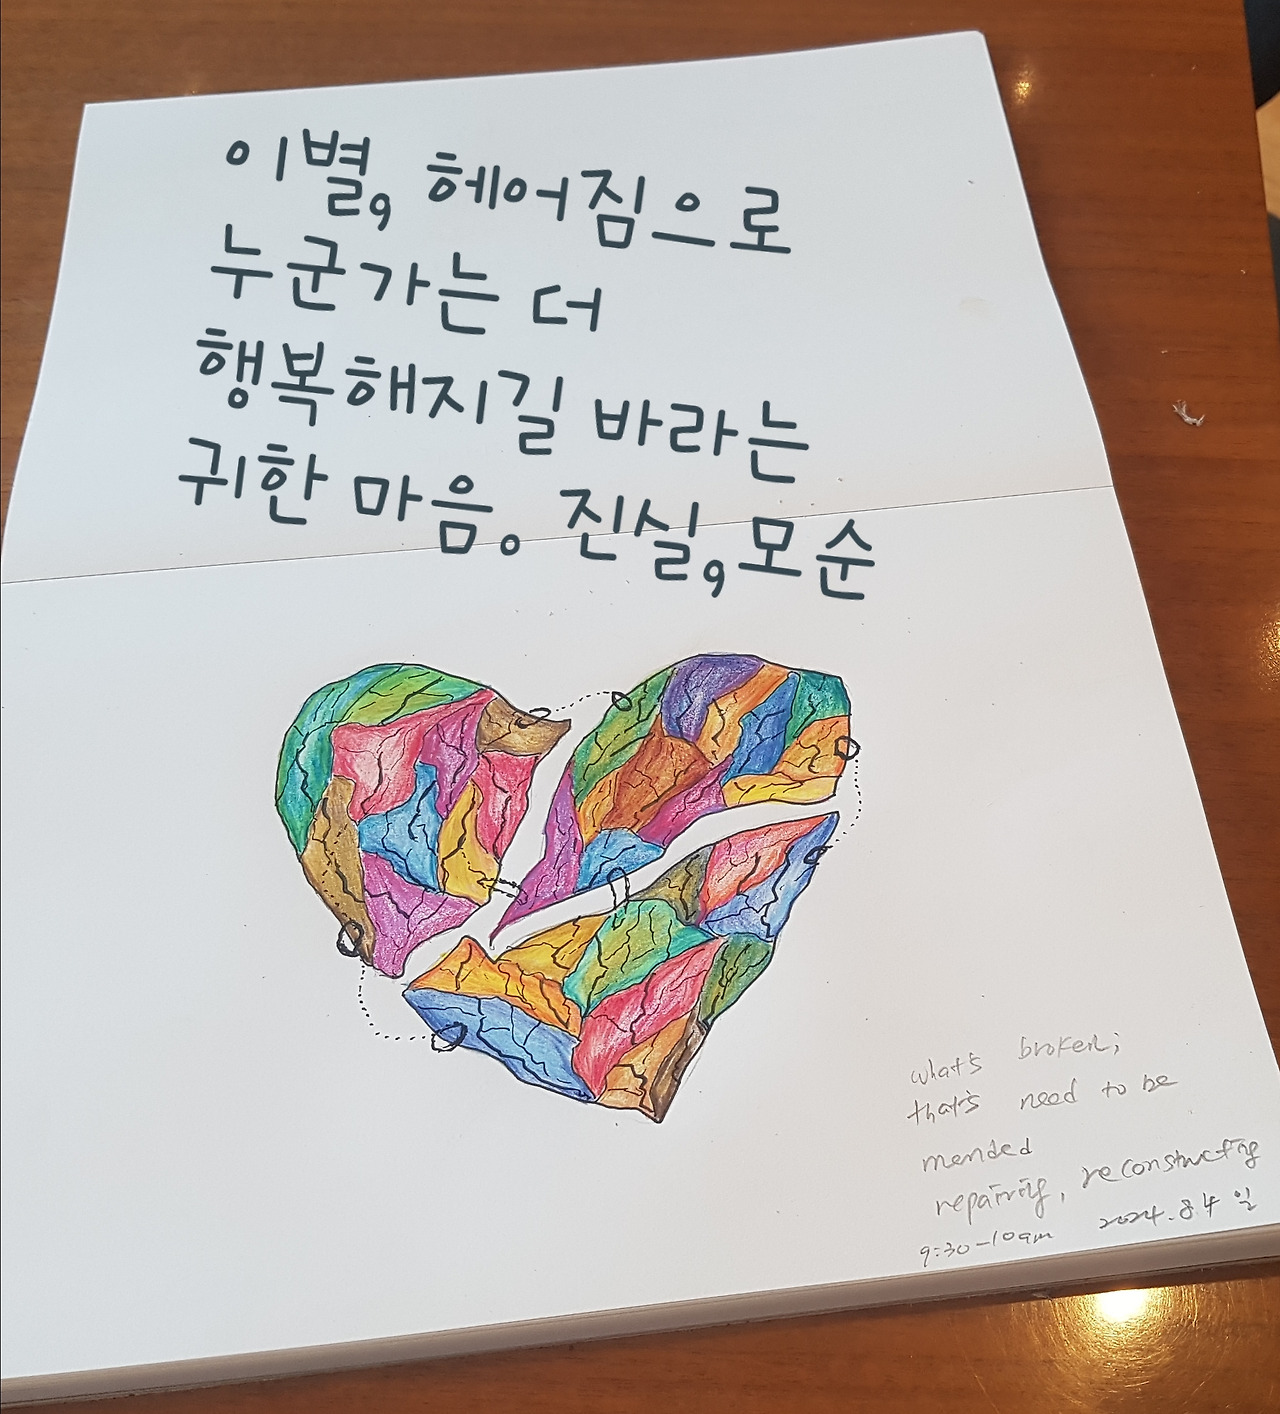 이별, 헤어짐으로
누군가는 더
행복해지길 바라는
귀한 마음. 진실, 모순
what's broken;
that's need to be
mended
repairing, reconstructing
9:30-10am 2024.8.4 일